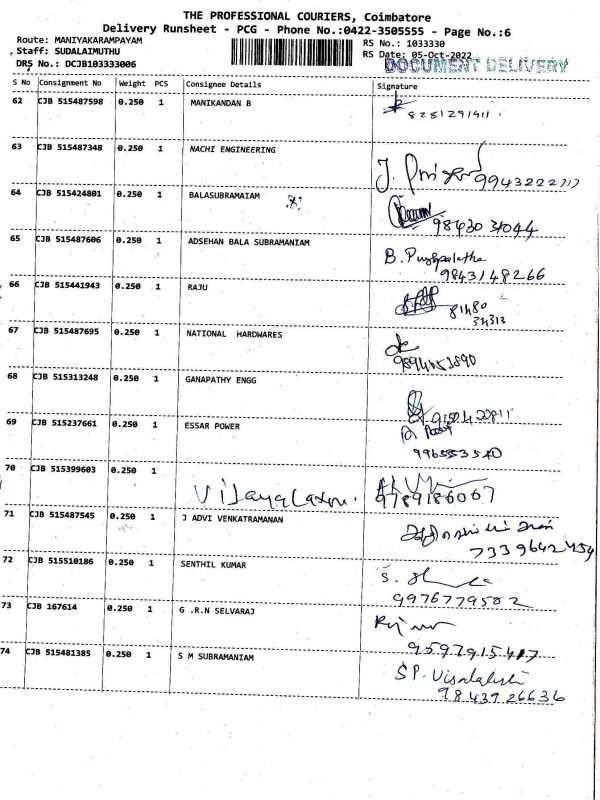 THE PROFESSIONAL COURIERS, Coimbatore
Delivery Runsheet - PCG - Phone No.:0422-3505555 - Page No.:6
Route: MANIYAKARAMPAYAM
Staff: SUDALAIMUTHU
DRS No.: DCJB103333006
RS No.: 1033330
RS Date: 05-Oct-2022
DOCUMENT DELIVERY
S No Consignment No Weight PCS Consignee Details Signature
62 CJB 515487598 0.250 1 MANIKANDAN B
8281291411
63 CJB 515487348 0.250 1 NACHI ENGINEERING
64 CJB 515424801 0.250 1 BALASUBRAMAIAM
65 CJB 515487606 0.250 1 ADSEHAN BALA SUBRAMANIAM
B. Pushpalatha
9843148266
66 CJB 515441943 0.250 1 RAJU
81480
34313
67 CJB 515487695 0.250 1 NATIONAL HARDWARES
68 CJB 515313248 0.250 1 GANAPATHY ENGG
69 CJB 515237661 0.250 1 ESSAR POWER
70 CJB 515399603 0.250 1 Vijayalaxmi
9789186067
71 CJB 515487545 0.250 1 J ADVI VENKATRAMANAN
7339642454
72 CJB 515510186 0.250 1 SENTHIL KUMAR
9976779502
73 CJB 167614 0.250 1 G .R.N SELVARAJ
9597915417
74 CJB 515481385 0.250 1 S M SUBRAMANIAM
SP. Visalakshi
9843926636